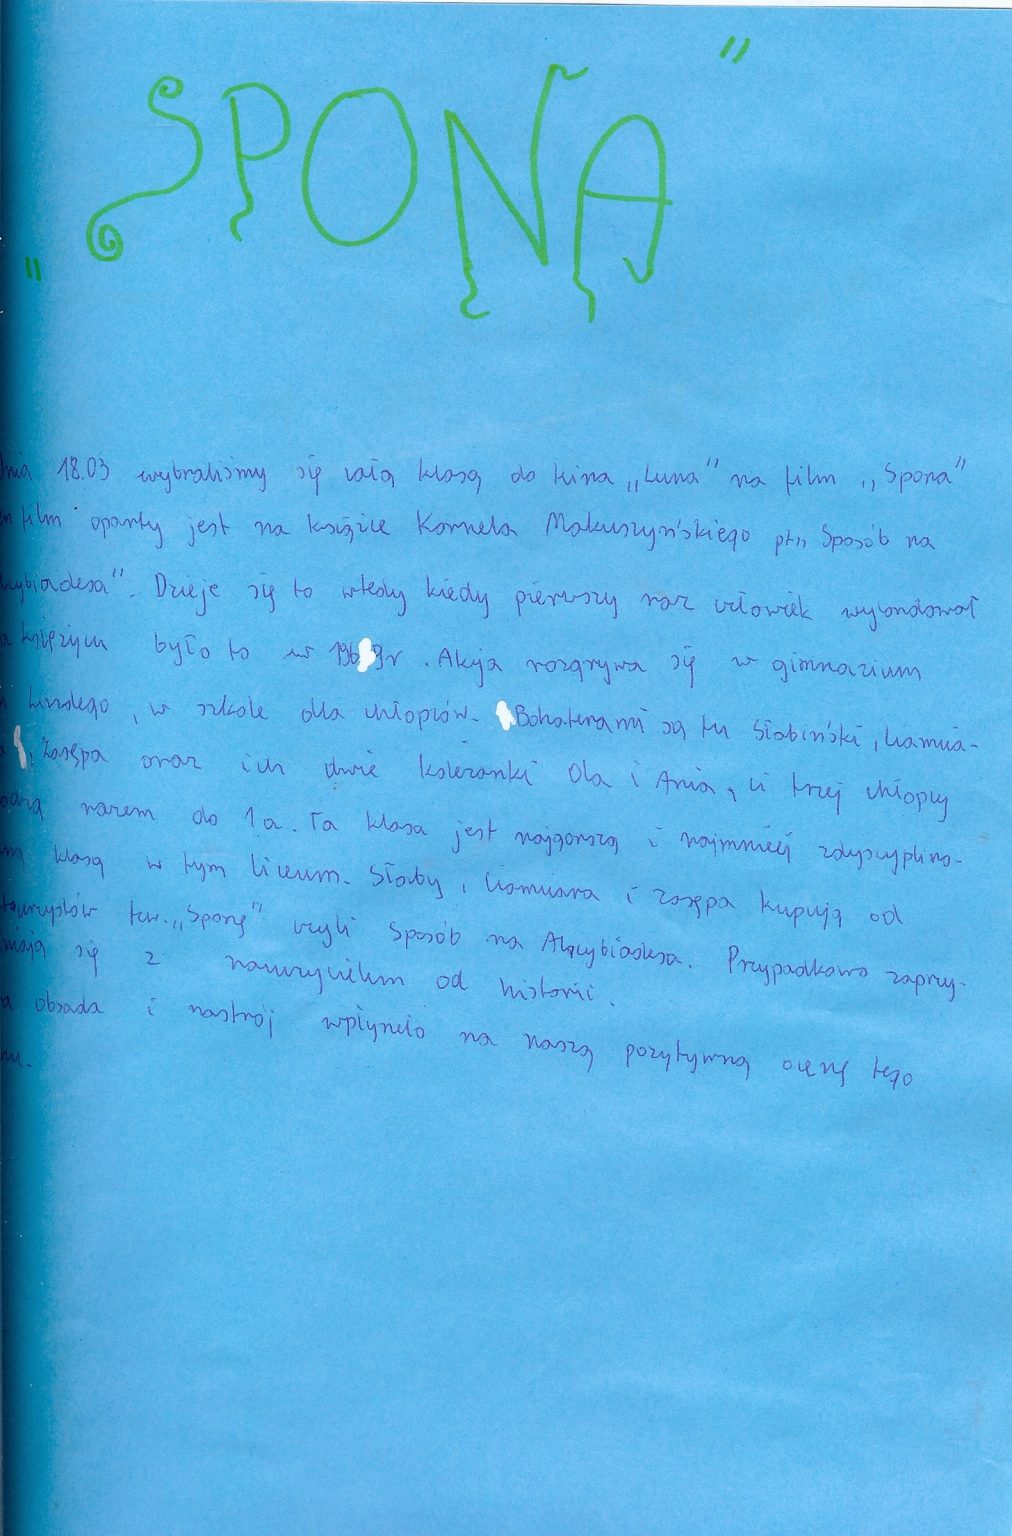 „SPONA”
dnia 18.03 wybraliśmy się całą klasą do kina „Luna” na film „Spona”
film oparty jest na książce Kornela Makuszyńskiego pt„ Sposób na
Alcybiadesa”. Dzieje się to wtedy kiedy pierwszy raz człowiek wylondował
na księżycu było to w 1969r. Akcja rozgrywa się w gimnazium
Lindego, w szkole dla chłopców. Bohaterami są tu Słabiński, Ciamcia-
ra, Zasępa oraz ich dwie koleżanki Ola i Ania, ci trzej chłopcy
razem do 1a. Ta klasa jest najgorszą i najmniej zdyscyplino-
ną klasą w tym liceum. Słaby, Ciamciara i Zasępa kupują od
tzw. „Sponę” czyli Sposób na Alcybiadesa. Przypadkowo zaprzy-
jaźniają się z nauczycielem od historii.
obsada i nastrój wpłyneło na naszą pozytywną ocenę tego